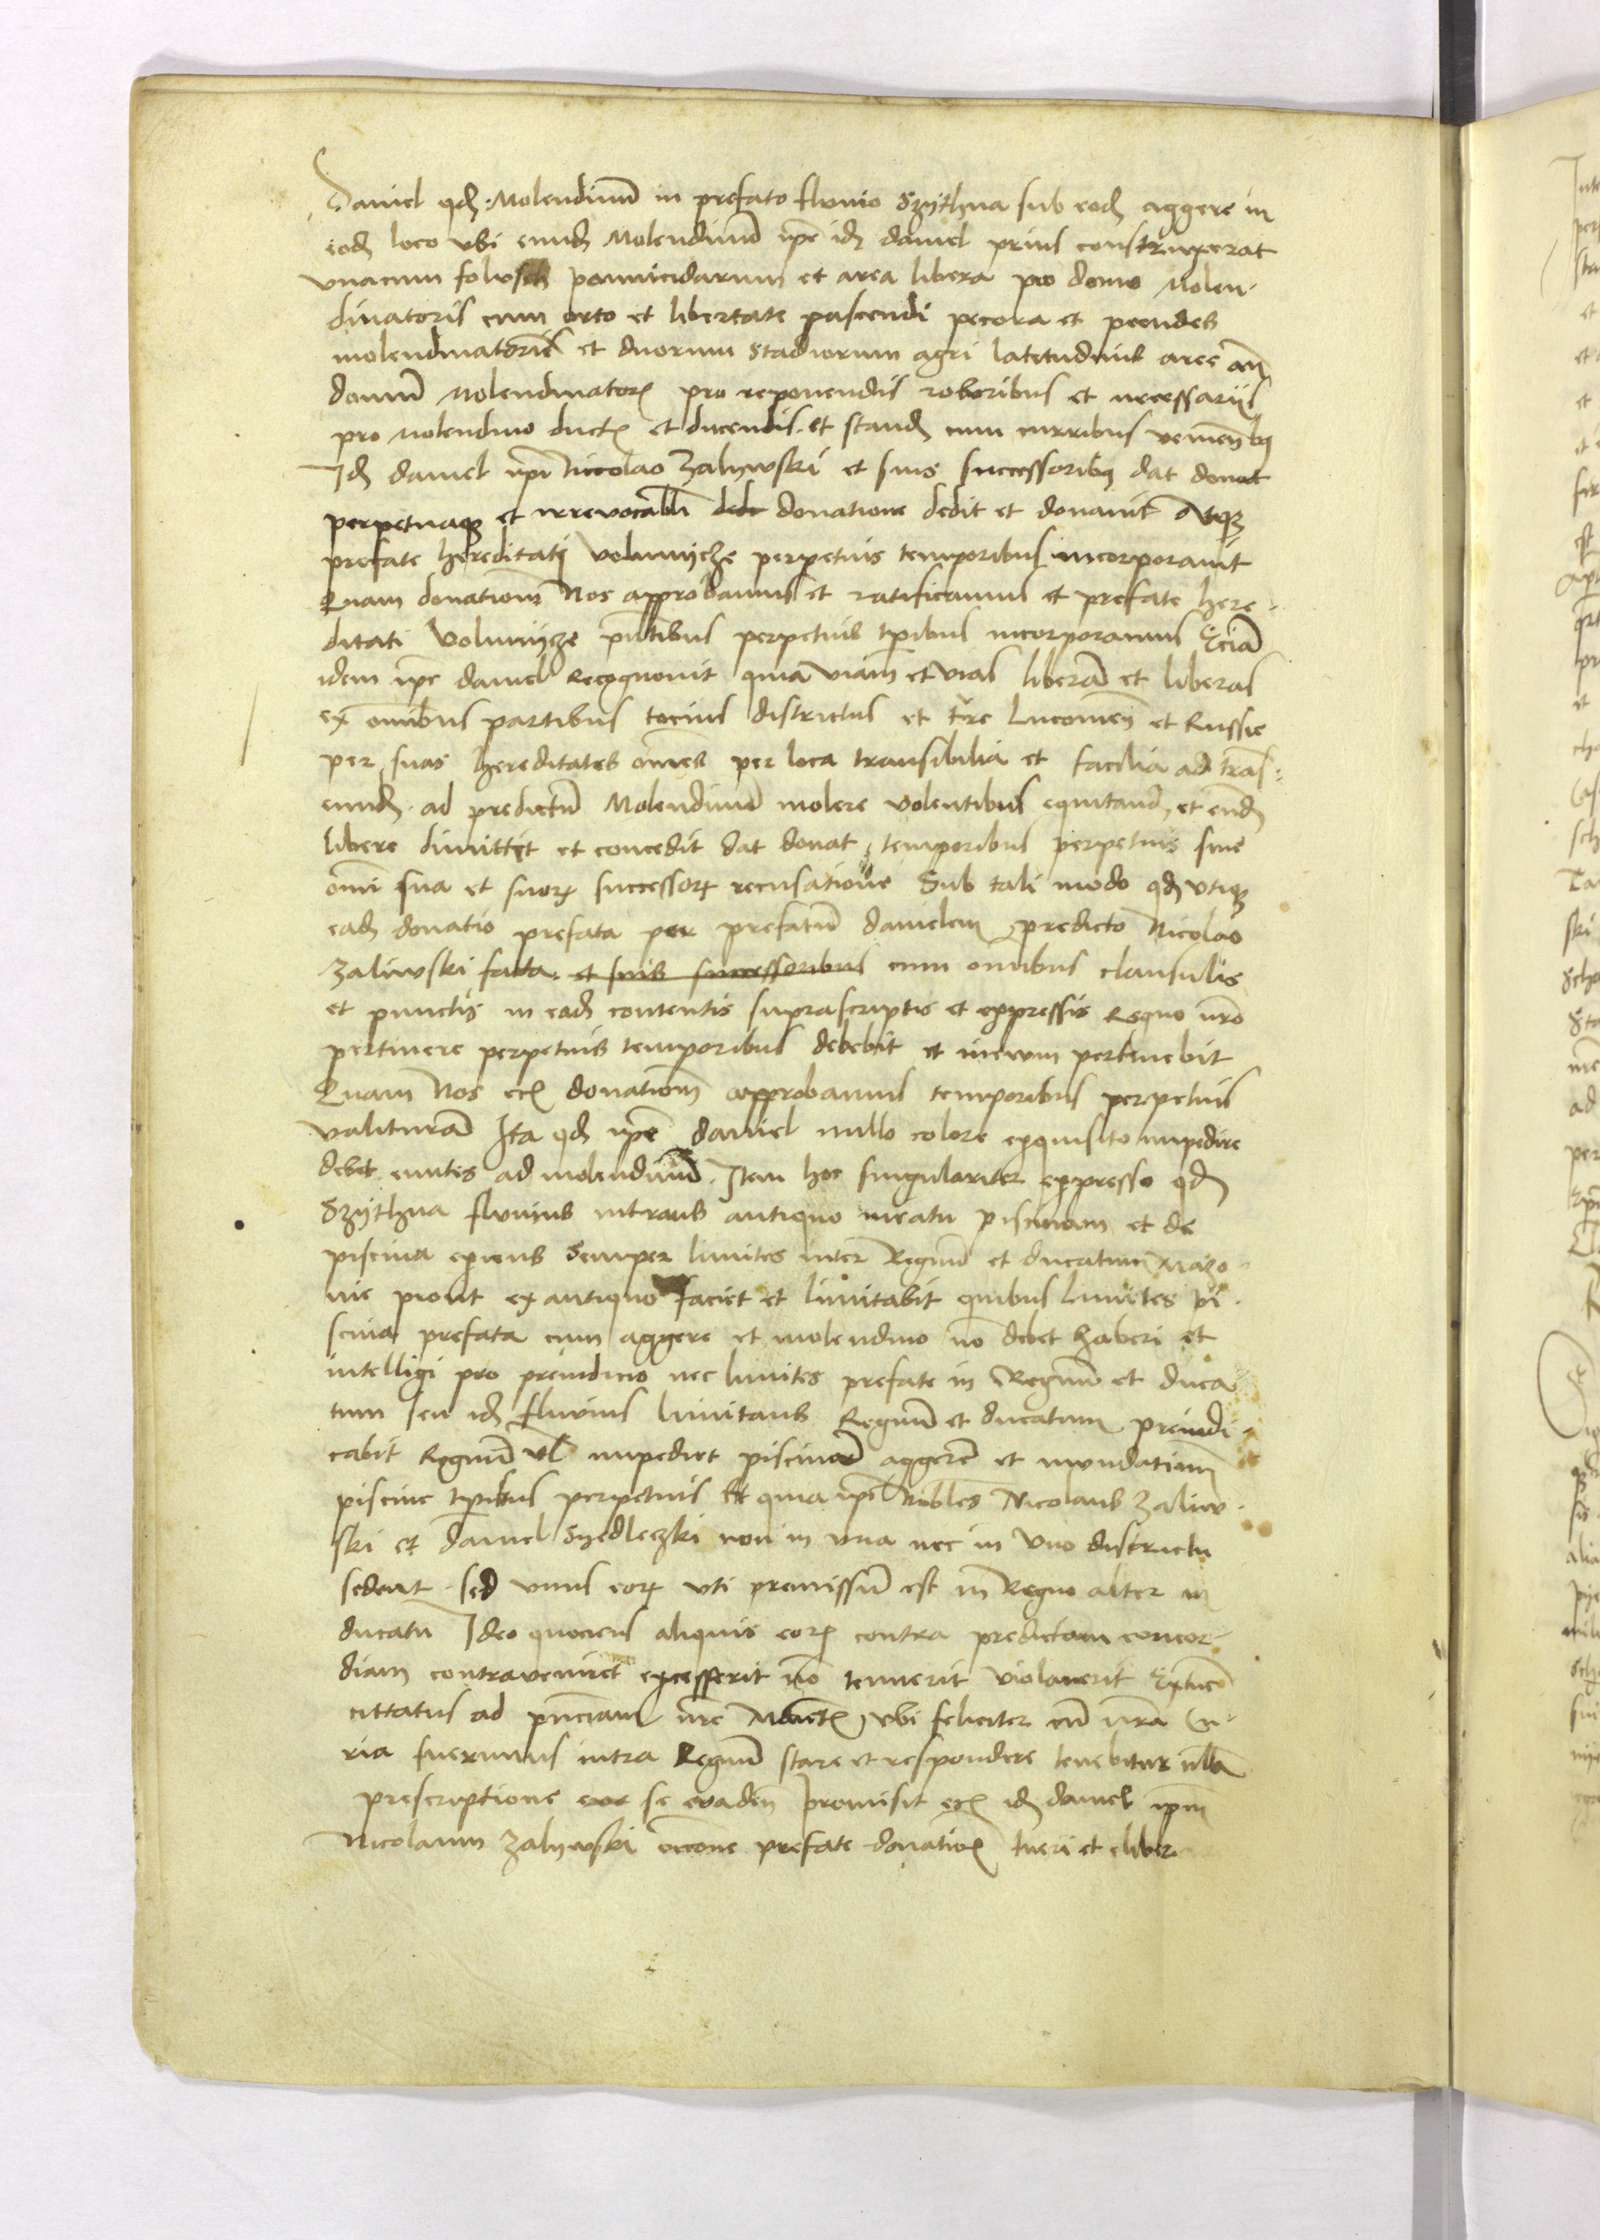 Daniel qd Molendinu in prefato fluvio Szythna sub eod aggere in
eod loco ubi eund Molendinu ipe id daniel prius construxerat
unacum folusch pannicidarum et area libera pro domo Molen-
dinatoris cum orto et libertate pascendi pecora et pecudes
molendinatorie et duorum stadiorum agri latitudinis aree an
domu Molendinator pro reponendis roboribus et necessariis
pro Molendino duct et ducendis et stand cum curribus venientibq
Id daniel ipi Nicolao Zalywski et suis successoribq dat donat
perpetuaqz et irrevocabli donatione dedit et donavit Atqz
prefate hereditati Volunycze perpetuis temporibus incorporavit
Quam donationem Nos approbamus et ratificamus et prefate here-
ditati Volunycze pntibus perpetuis tpribus incorporamus Eciam
idem ipe daniel Recognovit quia viam et vias liberam et liberas
ex omnibus partibus tocius districtus et tre Lucovien et Russie
per suas hereditates omes per loca transibilia et facilia ad tras-
eund ad predictum Molendinu molere volentibus equitand et eund
libere dimittit et concedit dat donat temporibus perpetuis sine
omi sua et suor successor recusatione Sub tali modo qd utiqz
ead donatio prefata per prefatum danielem predicto Nicolao
Zaliwski facta et suis successoribus cum omibus clausulis
et punctis in ead contentis suprascriptis et expressis Regno nro
pertinere perpetuis temporibus debebit et inevum pertinebit
Quam Nos donationem approbamus temporibus perpetuis
valituram Ita qd ipe daniel nullo colore exquisito impedire
debet euntes ad molendinu Item hoc singulariter expresso qd
Szythna fluvius intrans antiquo meatu piscinam et de
piscina exiens semper limites inter Regnum et ducatum Mazo-
vie prout ex antiquo faciet et limitabit quibus limites pi-
scina prefata cum aggere et molendino no debet haberi et
intelligi pro preiudicio nec limites prefate in Regnum et duca
tum seu id fluvius limitans Regnum et ducatum preiudi-
cabit Regnum vl impediet piscinam aggerem et inundationem
piscine tpribus perpetuis Et quia ipi Nobles Nicolaus Zaliw-
ski et daniel Syedleczki non in una nec in uno districtu
sedent sed unus eor uti premissum est in Regno alter in
ducatu Ideo quociens aliquis eor contra predictam concor-
diam contraveniret excesserit no tenuerit violaverit Extunc
cittatus ad pnciam nre Maiest ubi feliciter cu nra Cu-
ria fuerimus intra Regnum stare et respondere tenebitur nlla
prescriptione se evaden Promisit id daniel ipm
Nicolaum Zalywski occone prefate donation tueri et eliber